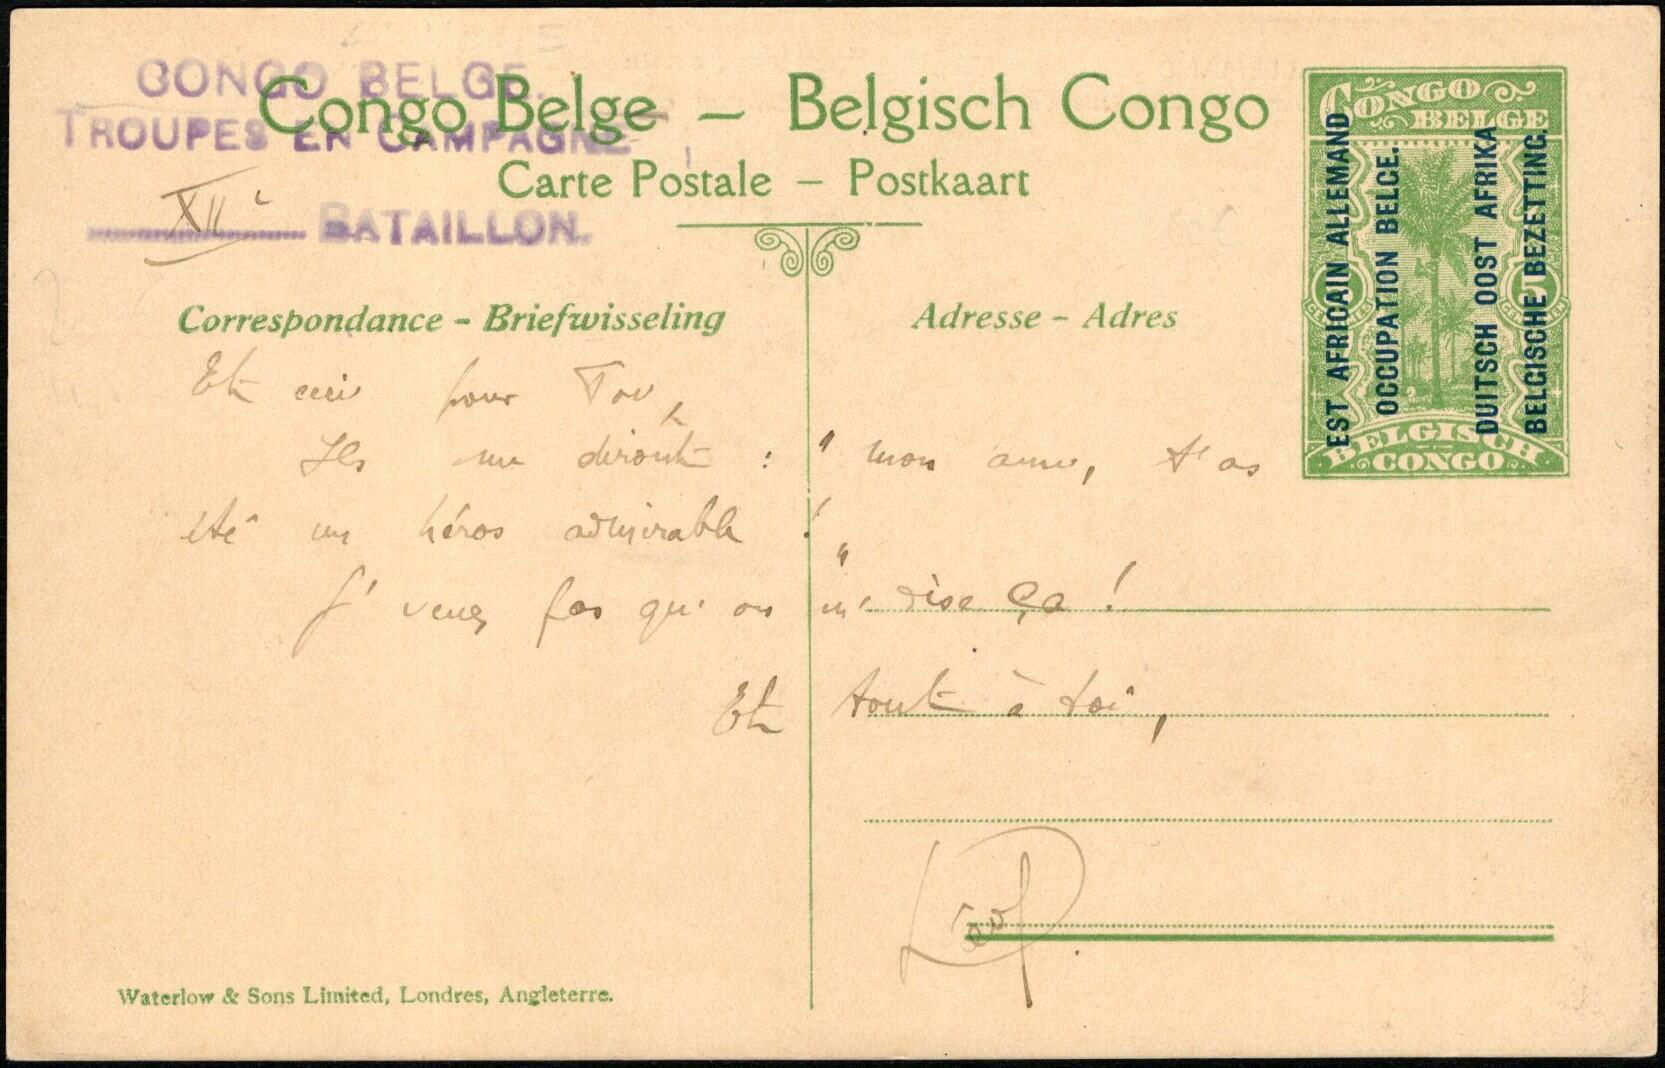 CONGO BELGE.
TROUPES EN CAMPAGNE
XIIe BATAILLON.
Congo Belge – Belgisch Congo
Carte Postale – Postkaart
CONGO BELGE
EST AFRICAIN ALLEMAND
OCCUPATION BELGE.
DUITSCH OOST AFRIKA
BELGISCHE BEZETTING.
5 5
BELGISCH CONGO
Correspondance – Briefwisseling
Adresse – Adres
Et ceci pour
Ils me diront : " mon ami, t'as
été un héros admirable ! "
J' veux pas qu' on m' dise ça !
Et tout à toi,
Waterlow & Sons Limited, Londres, Angleterre.